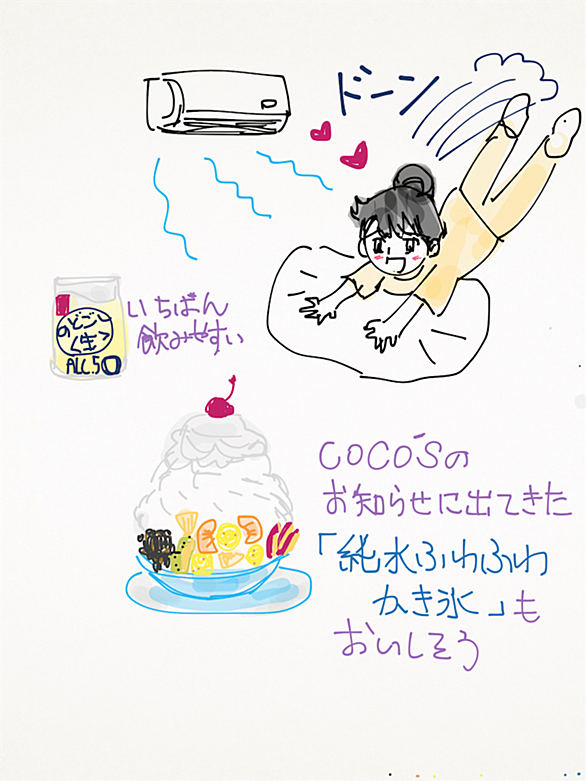 ドーン
いちばん
飲みやすい
のどごし
<生>
ALC.5
COCO'Sの
お知らせに出てきた
「純水ふわふわ
かき氷」も
おいしそう